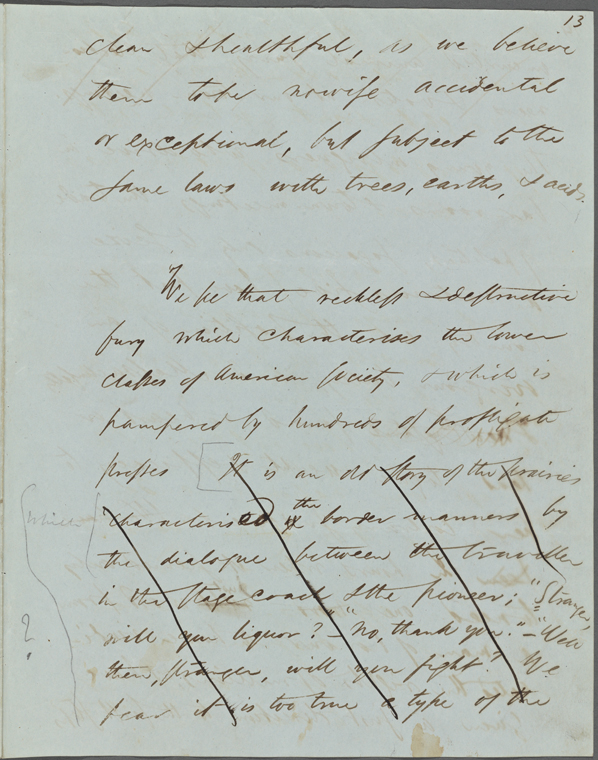 13
clean & healthful, as we believe
them to be nowise accidental
or exceptional, but subject to the
same laws with trees, earths, & acids.
We see that reckless & destructive
fury which characterises the lower
classes of American Society, & which is
pampered by hundreds of profligate
presses [It is an old story of the prairies
which characterised the border manners by
the dialogue between the traveller
in the stage coach & the pioneer; "Stranger,
will you liquor?"–"No, thank you."–"Well
? then, stranger, will you fight?" We
fear it is too true a type of the